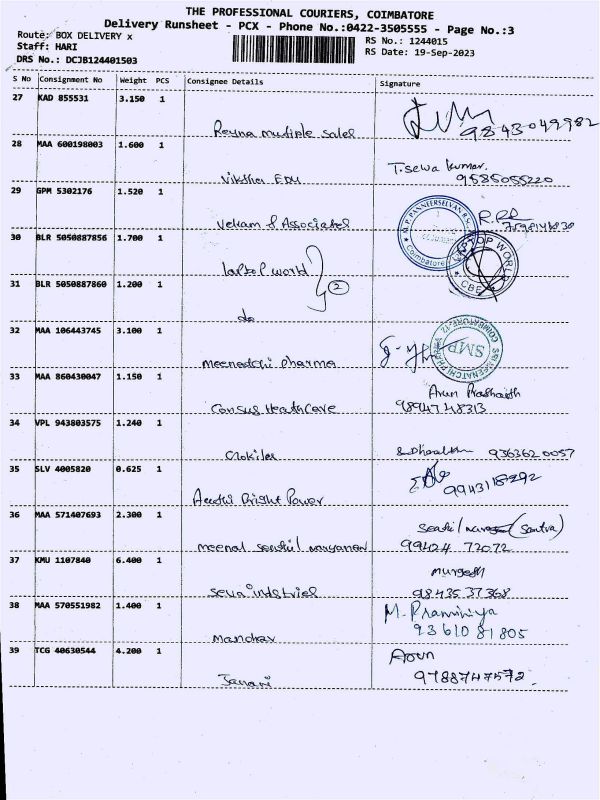 THE PROFESSIONAL COURIERS, COIMBATORE
Delivery Runsheet - PCX - Phone No.:0422-3505555 - Page No.:3
Route: BOX DELIVERY x
RS No.: 1244015
Staff: HARI
RS Date: 19-Sep-2023
DRS No.: DCJB124401503
S No Consignment No Weight PCS Consignee Details Signature
27 KAD 855531 3.150 1
Reyna multiple sales 9843049982
28 MAA 600198003 1.600 1
T. Sewa Kumar.
Viksha EDU 9585055220
29 GPM 5302176 1.520 1
Vekam & Associates
30 BLR 5050887856 1.700 1
Laptop world
31 BLR 5050887860 1.200 1
2
do
32 MAA 106443745 3.100 1
SMP
Meenatchi pharma
33 MAA 860430047 1.150 1
Arun Prashanth
Consus HeathCare 9894748313
34 VPL 943803575 1.240 1
Crokiler 9363620057
35 SLV 4005820 0.625 1
9943118292
Bright Power
36 MAA 571407693 2.300 1
meenal senthil narayanan 99424 72072
37 KMU 1107840 6.400 1
murgesh
Seva industriel 98435 37368
38 MAA 570551982 1.400 1
M. Pramniya
Manohar 93610 81805
39 TCG 40630544 4.200 1
Arun
Janani 9788747572